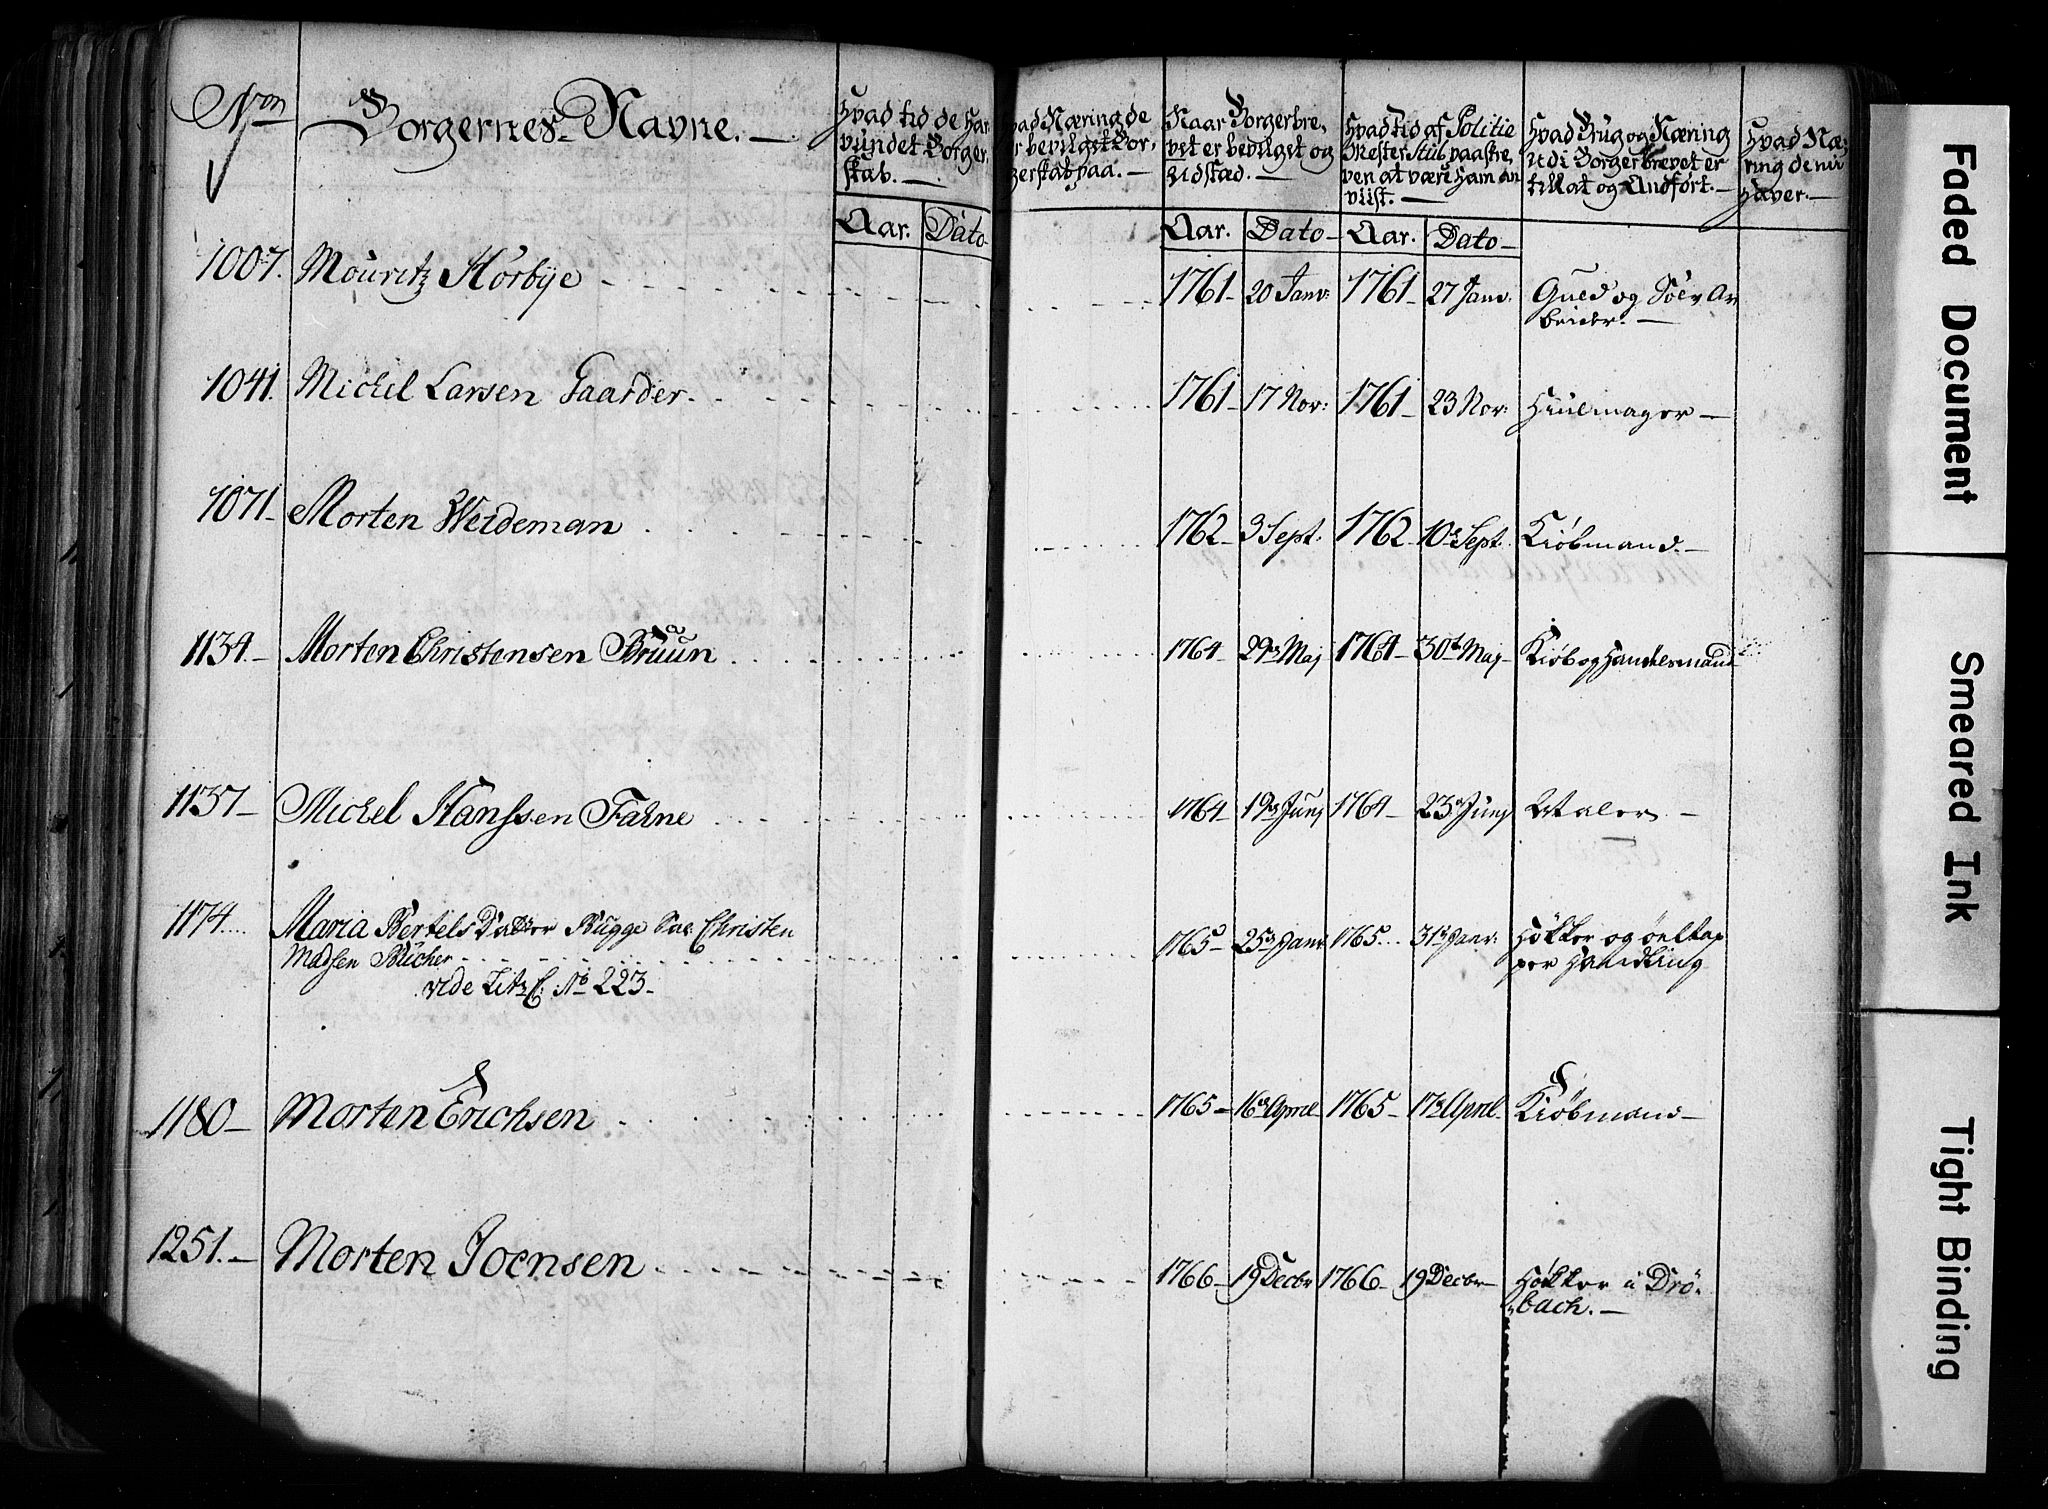 Nrm Borgernes Navne. —
Hvad tid de har
vundet Borger,
skab. —
Aar. Dato
vad Næring de
r bevilget Bor,
gerskab paa. —
Naar Borgerbre,
vet er bevilget og
Udstæd. —
Aar. Dato —
Hvad tid af Politie
Mester Stub paaskre,
ven at være ham an
viist. —
Aar. Dato —
Hvad Brug og Næring
Udi Borgerbrevet er
tillat og Anført. —
Hvad Næ,
ring de nu
haver. —
1007. Mouritz Horbÿe 1761 — 20 Janv: 1761 — 27 Janv: Gued og Sölv Ar
beider. —
1041. Michel Larsen Gaarder. 1761 — 17 Nov: 1761 — 23 Nov: Hiulmager —
1071 — Morten Weideman 1762 — 3 Sept. 1762 — 10 Sept. Kiøbmand. —
1134. — Morten Christensen Bruun 1764 — 29 Maj 1764 — 30 Maj — Kiøb og Handelsmand
1137 — Michel Hanssen Falne 1764 — 19 Junj 1764 — 23 Junj
1174 Maria Bertels Datter Bugge Sal. Christen
Madsen Bücher
vide Litr C: No 223 —
1765 — 25 Janv. 1765 31 Janv: Høkker og øeltap
per Handling
1180 — Morten Erichsen 1765 — 16 April 1765 — 17 April Kiøbmand —
1251. — Morten Joensen 1766 — 19 Decbr 1766 — 19 Decbr — Høkker i Drö,
bach. —
Faded Document
Smeared Ink
Tight Binding